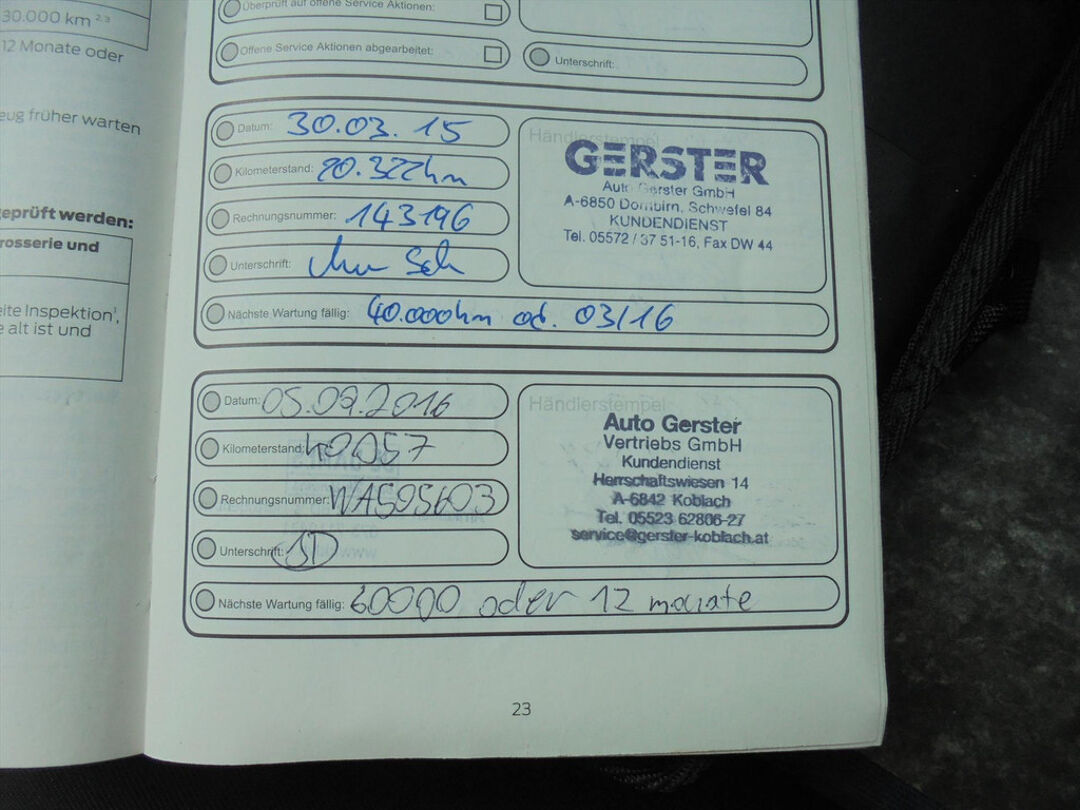 30.000 km 2,3
12 Monate oder
eug früher warten
eprüft werden:
rosserie und
eite Inspektion1,
e alt ist und
Überprüft auf offene Service Aktionen:
Offene Service Aktionen abgearbeitet:
Unterschrift:
Datum: 30.03.15
Kilometerstand: 20.322km
Rechnungsnummer: 143196
Unterschrift:
Nächste Wartung fällig: 40.000km od. 03/16
Händlerstempel
GERSTER
Auto Gerster GmbH
A-6850 Dornbirn, Schwefel 84
KUNDENDIENST
Tel. 05572 / 37 51-16, Fax DW 44
Datum: 05.07.2016
Kilometerstand: 40057
Rechnungsnummer: WA505603
Unterschrift:
Nächste Wartung fällig: 60000 oder 12 monate
Händlerstempel
Auto Gerster
Vertriebs GmbH
Kundendienst
Herrschaftswiesen 14
A-6842 Koblach
Tel. 05523 62806-27
service@gerster-koblach.at
23